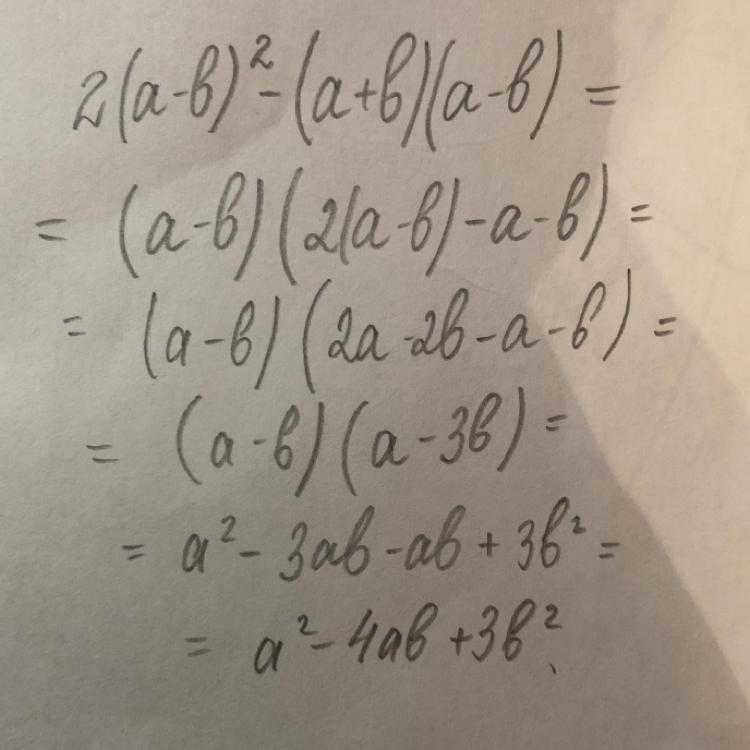 2(a-b)²-(a+b)(a-b) =
= (a-b)(2(a-b)-a-b) =
= (a-b)(2a-2b-a-b) =
= (a-b)(a-3b) =
= a²-3ab-ab+3b² =
= a²-4ab+3b².